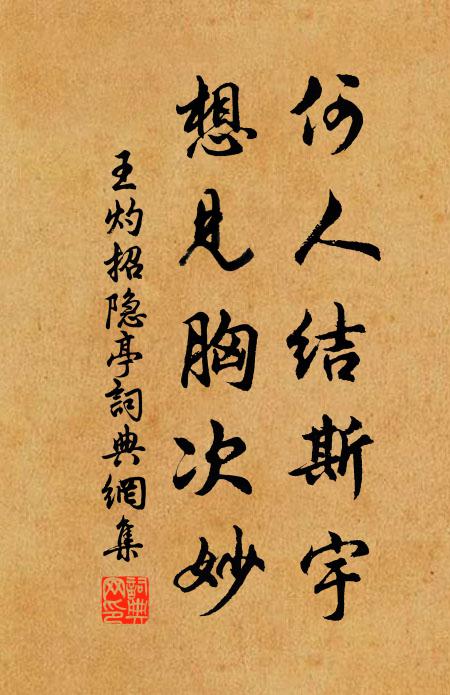 何人结斯宇
想见胸次妙
王灼招隐亭詞典網集
詞典網印